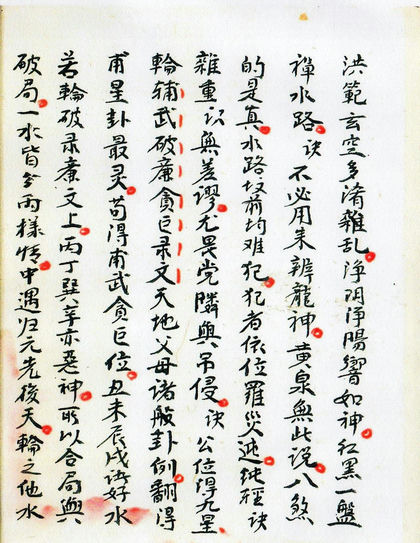 洪範玄空多淆雜乱淨阴淨陽響如神红黑一盤
禅水路诀不必用来辨龍神黄泉無此说八煞
的是真水路坟前均难犯犯者依位罹災迍纯诀
雜重以無差謬尤畏党隣與吊侵诀公位得九星
輪辅武破廉貪巨录文天地父母诸般卦例翻得
甫星卦最灵苟得甫武貪巨位丑未辰戌好水
若輪破录廉文上丙丁巽辛亦惡神所以合局與
破局一水皆分兩樣情中遇归元先後天輪之他水